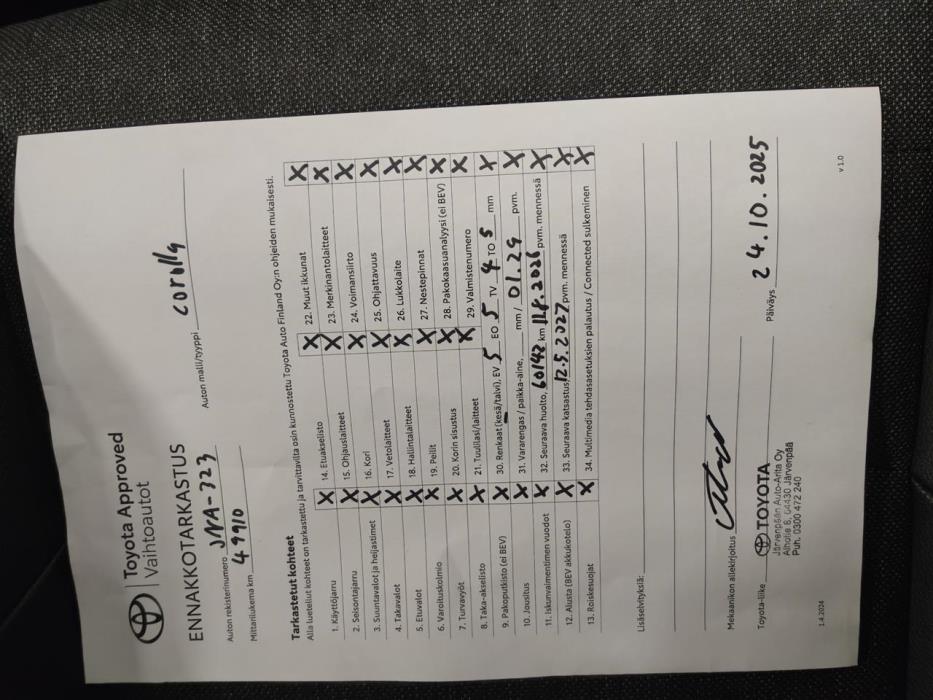 Toyota Approved
Vaihtoautot
ENNAKKOTARKASTUS
Auton rekisterinumero JNA-323 Auton malli/tyyppi corolla
Mittarilukema km 49910
Tarkastetut kohteet
Alla luetellut kohteet on tarkastettu ja tarvittavilta osin kunnostettu Toyota Auto Finland Oy:n ohjeiden mukaisesti.
1. Käyttöjarru X 14. Etuakselisto X 22. Muut ikkunat X
2. Seisontajarru X 15. Ohjauslaitteet X 23. Merkinantolaitteet X
3. Suuntavalot ja heijastimet X 16. Kori X 24. Voimansiirto X
4. Takavalot X 17. Vetolaitteet X 25. Ohjattavuus X
5. Etuvalot X 18. Hallintalaitteet X 26. Lukkolaite X
6. Varoituskolmio X 19. Peilit X 27. Nestepinnat X
7. Turvavyöt X 20. Korin sisustus X 28. Pakokaasuanalyysi (ei BEV) X
8. Taka-akselisto X 21. Tuulilasi/laitteet X 29. Valmistenumero X
9. Pakoputkisto (ei BEV) X 30. Renkaat (kesä/talvi), EV 5 EO 5 TV 4 TO 5 mm X
10. Jousitus X 31. Vararengas / paikka-aine, mm / 01.29 pvm. X
11. Iskunvaimentimen vuodot X 32. Seuraava huolto, 60142 km 11.8.2026 pvm. mennessä X
12. Alusta (BEV akkukotelo) X 33. Seuraava katsastus, 12.5.2027 pvm. mennessä X
13. Roiskesuojat X 34. Multimedia tehdasasetuksien palautus / Connected sulkeminen X
Lisäselvityksiä:
Mekaanikon allekirjoitus
Toyota-liike TOYOTA Päiväys 24.10.2025
Järvenpään Auto-Arita Oy
Alhotie 6, 04430 Järvenpää
Puh. 0300 472 240
1.4.2024 v 1.0